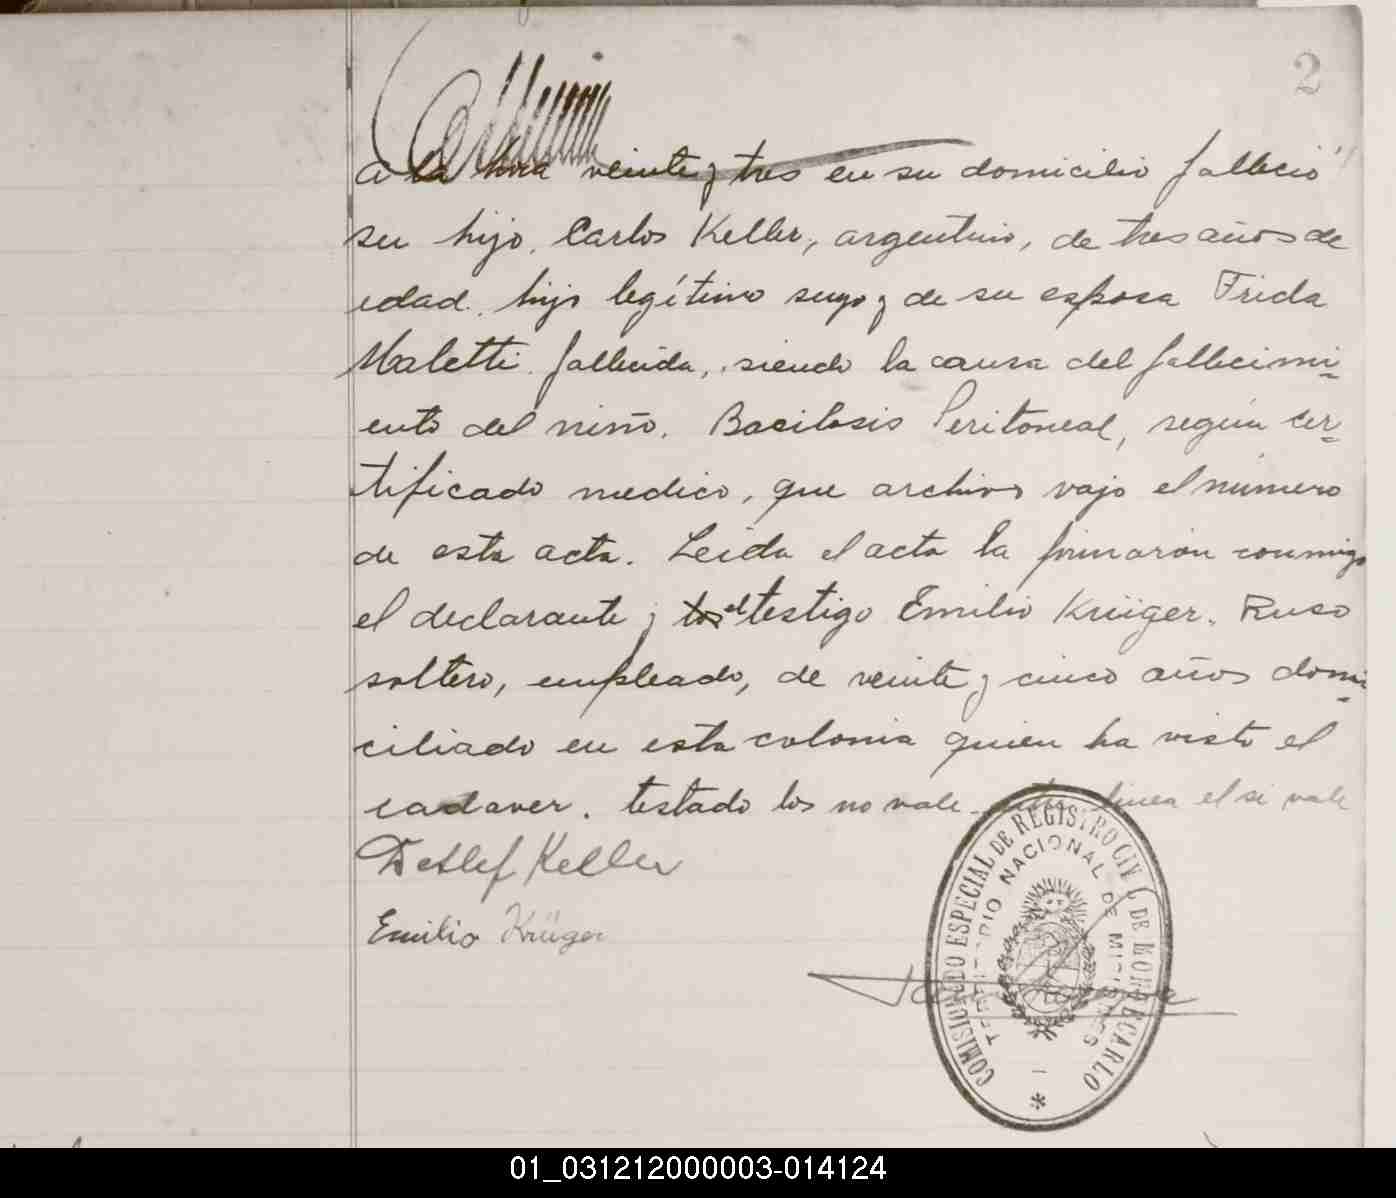 2
a la hora veinte y tres en su domicilio falleció
su hijo, Carlos Keller, argentino, de tres años de
edad, hijo legítimo suyo y de su esposa Frida
Maletti fallecida, siendo la causa del fallecimi-
ento del niño, Bacilosis Peritoneal, según cer-
tificado medico, que archivo vajo el número
de esta acta. Leida el acta la firmaron conmigo
el declarante y los el testigo Emilio Krüger, Ruso
soltero, empleado, de veinte y cinco años domi-
ciliado en esta colonia quien ha visto el
cadaver. testado los no vale entre linea el si vale
Detlef Keller
Emilio Krüger
COMISIONADO ESPECIAL DE REGISTRO CIVIL DE MONTECARLO
TERRITORIO NACIONAL DE MISIONES
01_031212000003-014124